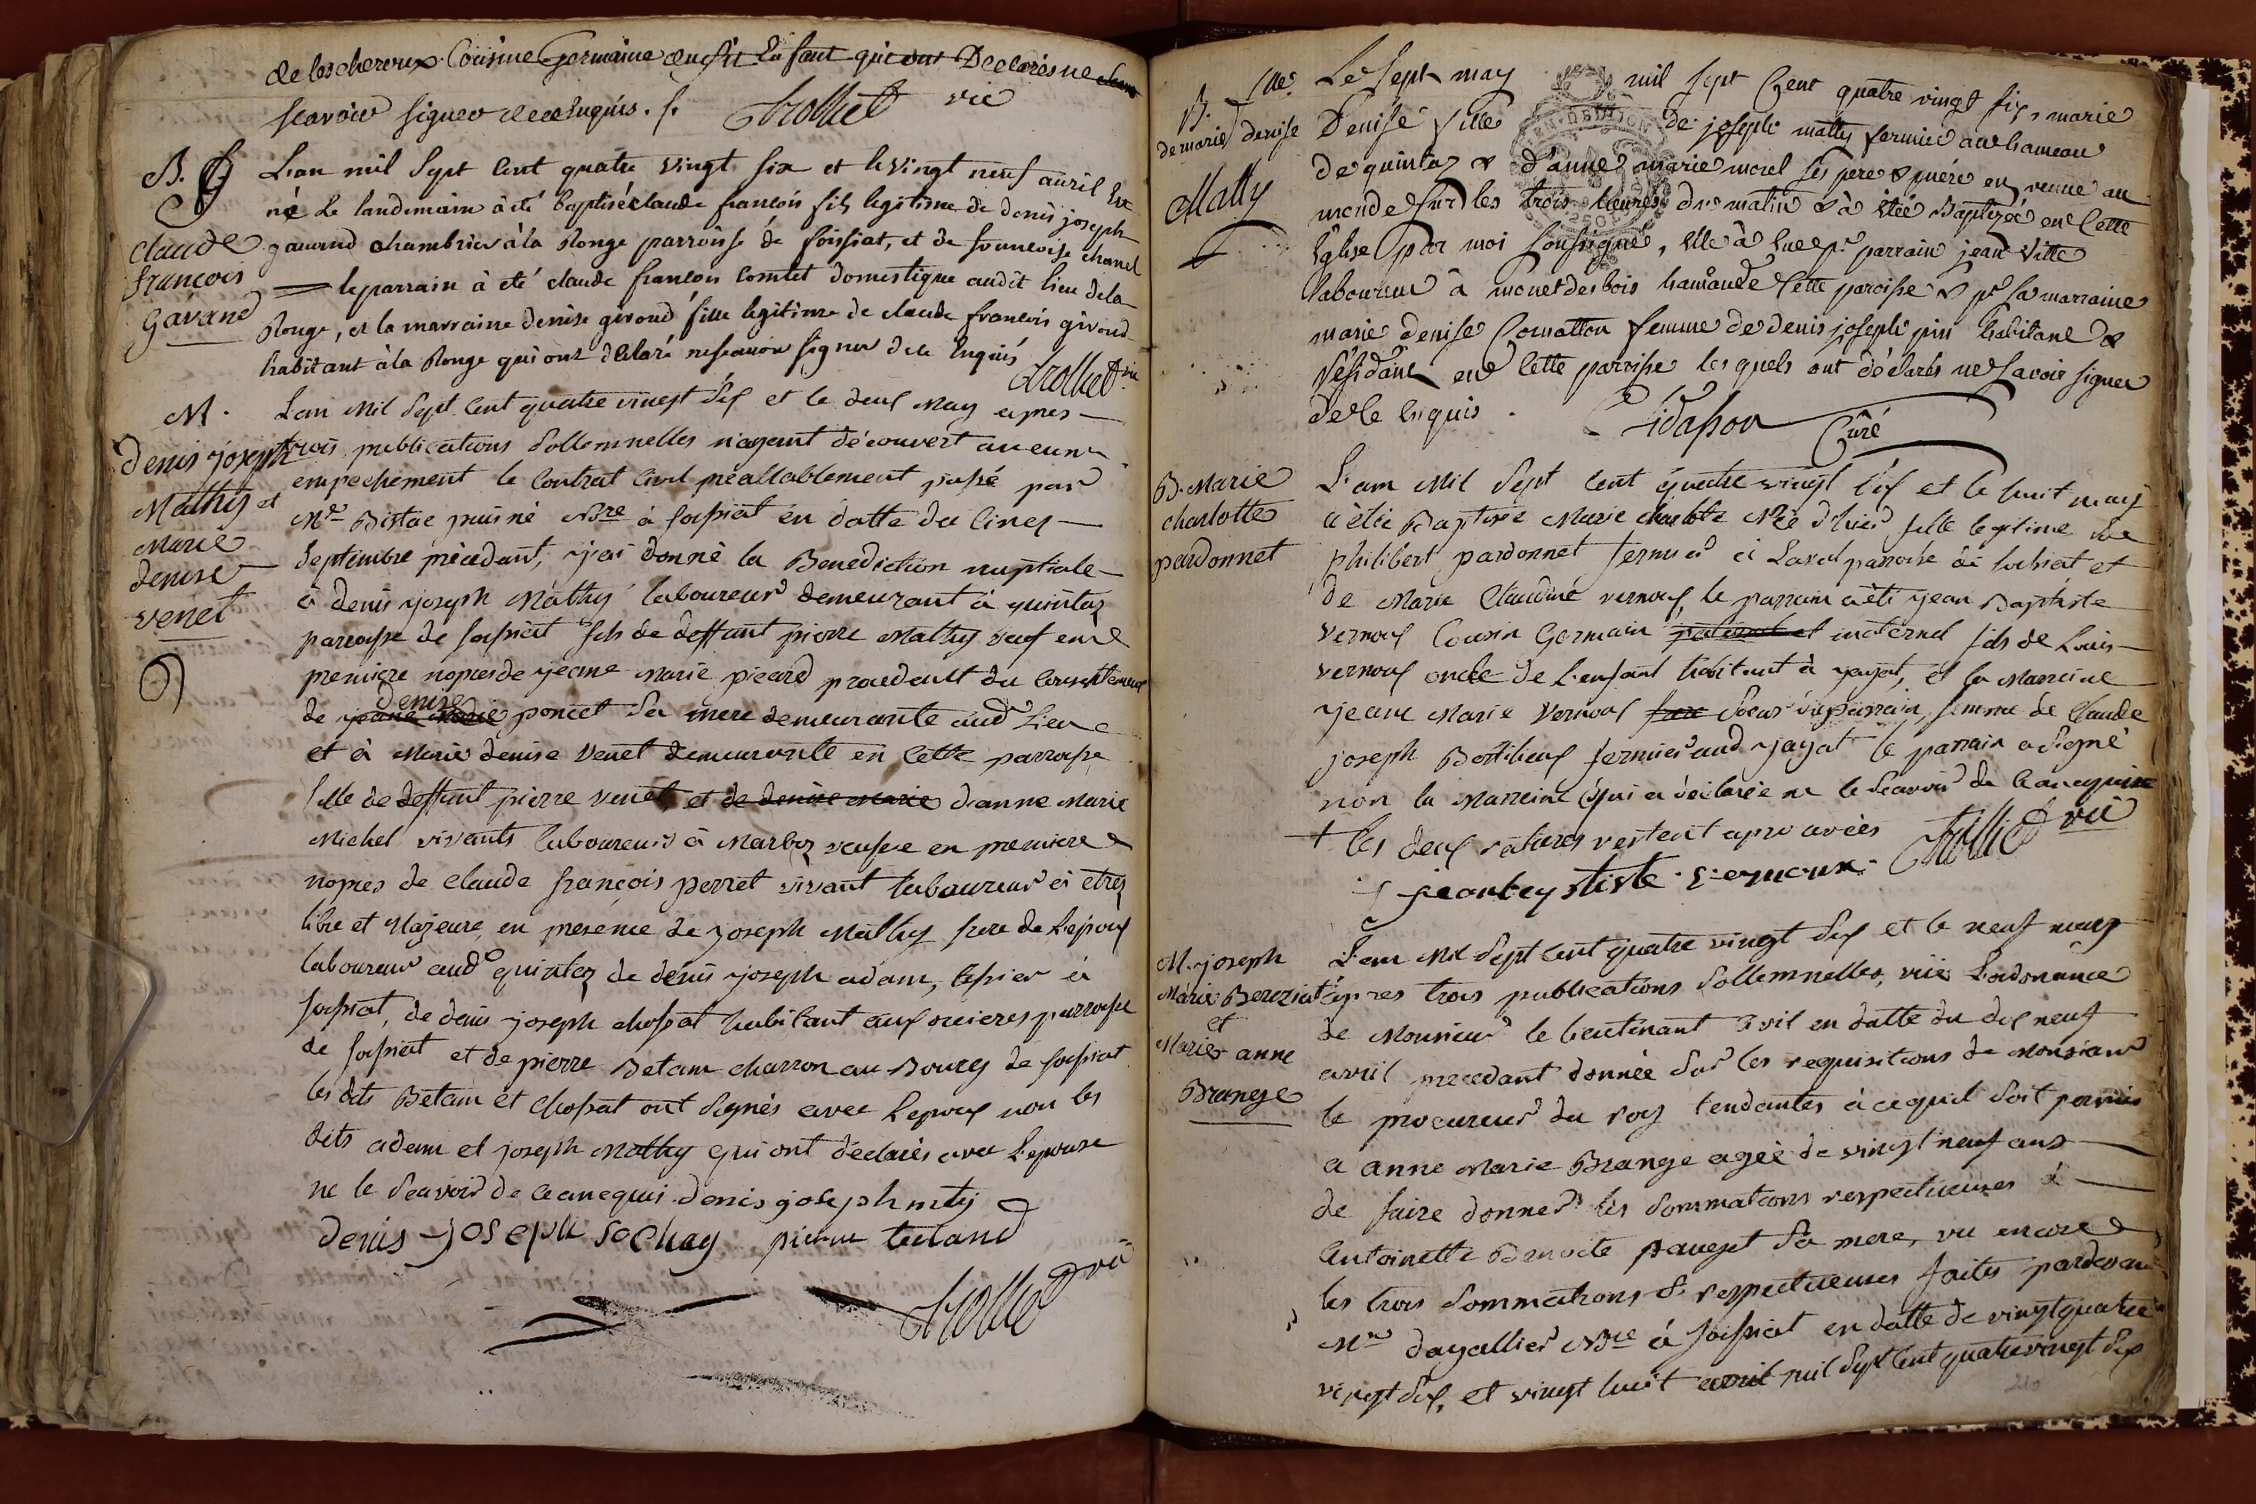 de lescheroux Cousine Germaine audit Enfant qui ont Declarés ne
scavoir signer de ce Enquis. Trolliet vic
B.
Claude
françois
Gavand
L'an mil sept cent quatre vingt six et le vingt neuf avril Est
né Le landemain à été baptisé claude francois fils legitime de denis joseph
gavand chambrier à la Ronge parroisse de foissiat, et de francoise chanel
le parrain à eté claude francois Comtet domestique audit lieu dela
Ronge, et la marraine denise giroud fille legitime de claude francois giroud
habitant à la Ronge qui ont declaré ne scavoir signer de ce Enquis Trolliet vic
M.
Denis joseph
Mathy et
Marie
denise
Venet
L'an Mil Sept Cent quatre vingt Six et le deux May apres
trois publications Sollemnelles n'ayant découvert aucun
empechement le Contrat Civil préallablement passé par
Mre Bistac puisné Nre à foissiat en datte du Cinq
Septembre précedant, j'ai donné la Benediction nuptiale
à denis joseph Mathy laboureur demeurant à quintaz
parroisse de foissiat fils de deffunt pierre Mathy veuf en
premiere nopces de jeanne Marie picard procedant du consentement
de jeanne Marie denise poncet Sa mere demeurante aud Lieu
et à Marie denise Venet demeurante en Cette parroisse
fille de deffunt pierre venet, et de denise Marie d'anne Marie
Michel vivants laboureurs à Marboz veuve en premiere
nopces de Claude françois perret vivant laboureur à etrez
libre et Majeure, en presence de joseph Mathy frere de L'epoux
laboureur aud quintaz de denis joseph adam, tissier à
foissiat, de denis joseph chossat habitant aux ouieres parroisse
de foissiat et de pierre Betam charron au Bourg de foissiat
les dits Betam et chossat ont Signés avec L'epoux non les
dits adam et joseph Mathy qui ont déclarés avec L'epouse
ne le Scavoir de ce enquis denis joseph mty
denis joseph Sochay pierre
Trolliet vic
B.
de marie denise
Mathy
Le Sept may mil sept Cent quatre vingt six, marie
Denise fille de joseph mathy fermier au hameau
de quintaz & d'anne marie morel ses pere & mére en venue au
monde sur les trois heures du matin & à étée Baptizée en Cette
Eglise par moi soussigné, Elle à Eue pr. parrain jean Vitte
laboureur à monet des bois hamau de Cette paroisse & pr. sa marraine
marie denise Cornatton femme de denis joseph pin habitant &
Résidant en Cette paroisse les quels ont déclarés ne savoir signer
de ce Enquis.
Curé
B. Marie
charlotte
pardonnet
L'an Mil Sept Cent quatre vingt six et le huit may
a étée Baptisée Marie charlotte Née d'hier fille legitime de
philibert pardonnet fermier à Laval parroisse de foissiat et
de Marie Claudine vernoux, le parrain a été jean Baptiste
vernoux Cousin Germain paternel et maternel fils de Louis
vernoux oncle de L'enfant habitant à jayat, et la Marraine
jeanne Marie Vernoux Soeur du parrain, femme de Claude
joseph Borthieux fermier aud jayat le parrain a Signé
non la Marraine qui a déclarée ne le Scavoir de ce enquise
+ les deux ratures restent aprouvées Trolliet vic
M. joseph
Marie Bereziat
et
Marie anne
Brange
L'an Mil Sept Cent quatre vingt Six et le neuf may
apres trois publications Sollemnelles, vüe L'ordonance
de Monsieur le lieutenant Civil en datte du dix neuf
avril precedant donnée Sur les requisitions de Monsieur
le procureur du roy tendantes à ce qu'il Soit permis
a anne Marie Brange agée de vingt neuf ans
de faire donner les Sommations respectueuses à
Antoinette Benoite Sa mere, vu encore
les trois Sommations respectueuses faites pardevant
Mre dagallier Nre à foissiat en datte de vingtquatre
vingt Six, et vingt huit avril mil Sept cent quatrevingt Six